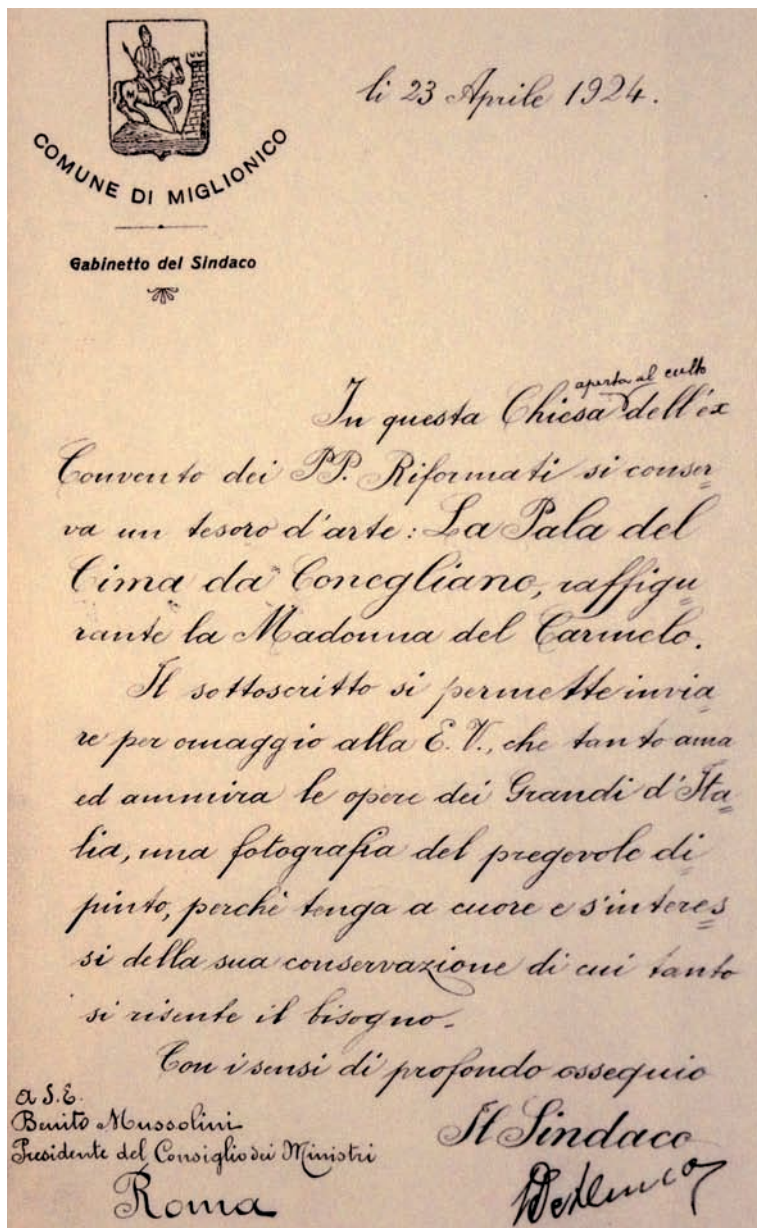 COMUNE DI MIGLIONICO
Gabinetto del Sindaco
li 23 Aprile 1924.
aperta al culto
In questa Chiesa dell'ex
Convento dei PP. Riformati si conser=
va un tesoro d'arte: La Pala del
Cima da Conegliano, raffigu=
rante la Madonna del Carmelo.
Il sottoscritto si permette invia=
re per omaggio alla E.V., che tanto ama
ed ammira le opere dei Grandi d'Ita=
lia, una fotografia del pregevole di=
pinto, perchè tenga a cuore e s'interes=
si della sua conservazione di cui tanto
si risente il bisogno.
Con i sensi di profondo ossequio
a S.E.
Benito Mussolini
Presidente del Consiglio dei Ministri
Roma
Il Sindaco